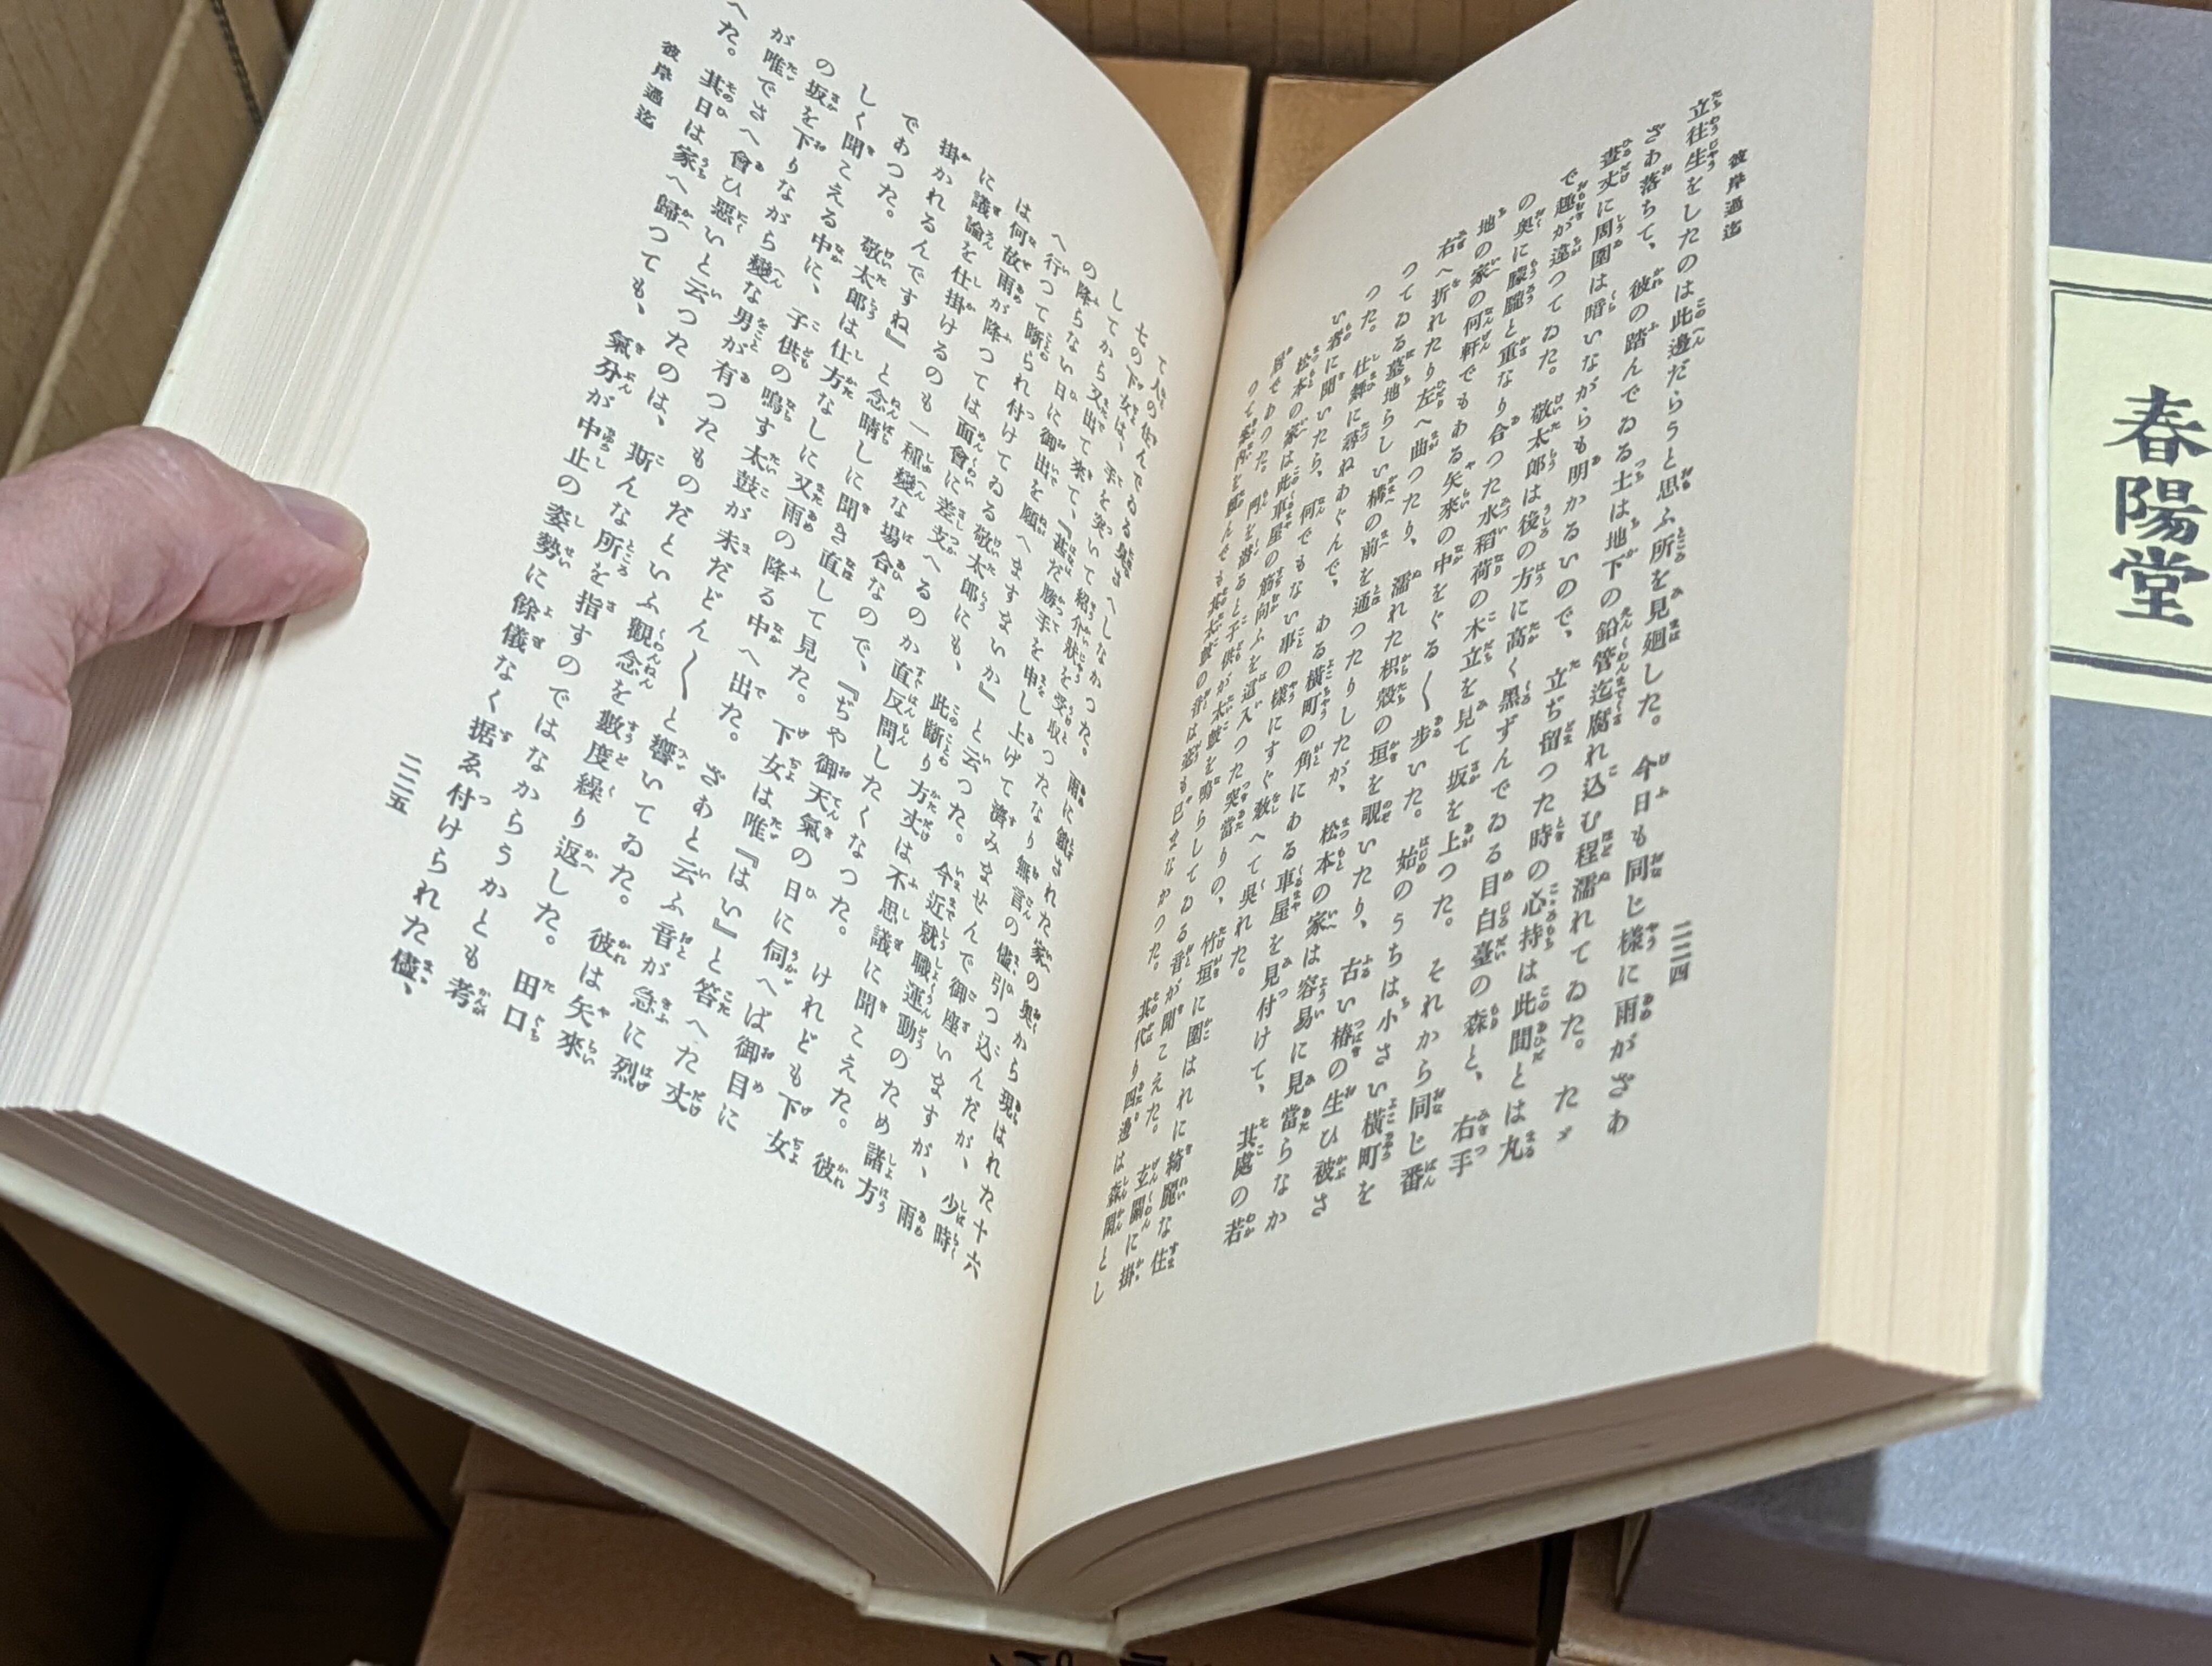 彼岸過迄
立往生をしたのは此邊だらうと思ふ所を見廻した。今日も同じ様に雨がざあ
ざあ落ちて、彼の踏んでゐる土は地下の鉛管迄腐れ込む程濡れてゐた。たゞ
晝丈に周圍は暗いながらも明かるいので、立ち留つた時の心持は此間とは丸
で趣が違つてゐた。敬太郎は後の方に高く黒ずんでゐる目白臺の森と、右手
の奥に朦朧と重なり合つた水稻荷の木立を見て坂を上つた。それから同じ番
地の家の何軒でもある矢来の中をぐる〱歩いた。始のうちは小さい横町を
右へ折れたり左へ曲つたり、濡れた枳殻の垣を覗いたり、古い椿の生ひ被さ
つてゐる墓地らしい構の前を通つたりしたが、松本の家は容易に見當らなか
つた。仕舞に尋ねあぐんで、ある横町の角にある車屋を見付けて、其處の若
い者に聞いたら、何でもない事の様にすぐ教へて呉れた。
松本の家は此車屋の筋向ふを這入つた突當りの、竹垣に圍はれた綺麗な住
居であつた。門を潜ると子供が太鼓を鳴らしてゐる音が聞こえた。玄關に掛
つて案内を頼んでも其太鼓の音は毫も已まなかつた。其代り四邊は森閑とし
二二四
て人の住んでゐる臭さへしなかつた。雨に鎖された家の奥から現はれた十六
七の下女は、手を突いて紹介狀を受取つたなり無言の儘引つ込んだが、少時
してから又出て來て、『甚だ勝手を申し上げて濟みませんで御座いますが、雨
の降らない日に御出を願へますまいか』と云つた。今迄就職運動のため諸方
へ行つて斷られ付けてゐる敬太郎にも、此斷り方丈は不思議に聞こえた。彼
は何故雨が降つては面會に差支へるのか直反問したくなつた。けれども下女
に議論を仕掛けるのも一種變な場合なので、『ぢや御天氣の日に伺へば御目に
掛かれるんですね』と念晴しに聞き直して見た。下女は唯『はい』と答へた丈
であつた。敬太郎は仕方なしに又雨の降る中へ出た。ざあと云ふ音が急に烈
しく聞こえる中に、子供の鳴す太鼓が未だどん〱と響いてゐた。彼は矢來
の坂を下りながら變な男が有つたものだといふ觀念を數度繰り返した。田口
が唯でさへ會ひ惡いと云つたのは、斯んな所を指すのではなからうかとも考
へた。其日は家へ歸つても、氣分が中止の姿勢に餘儀なく据ゑ付けられた儘、
彼岸過迄
二二五
春陽堂